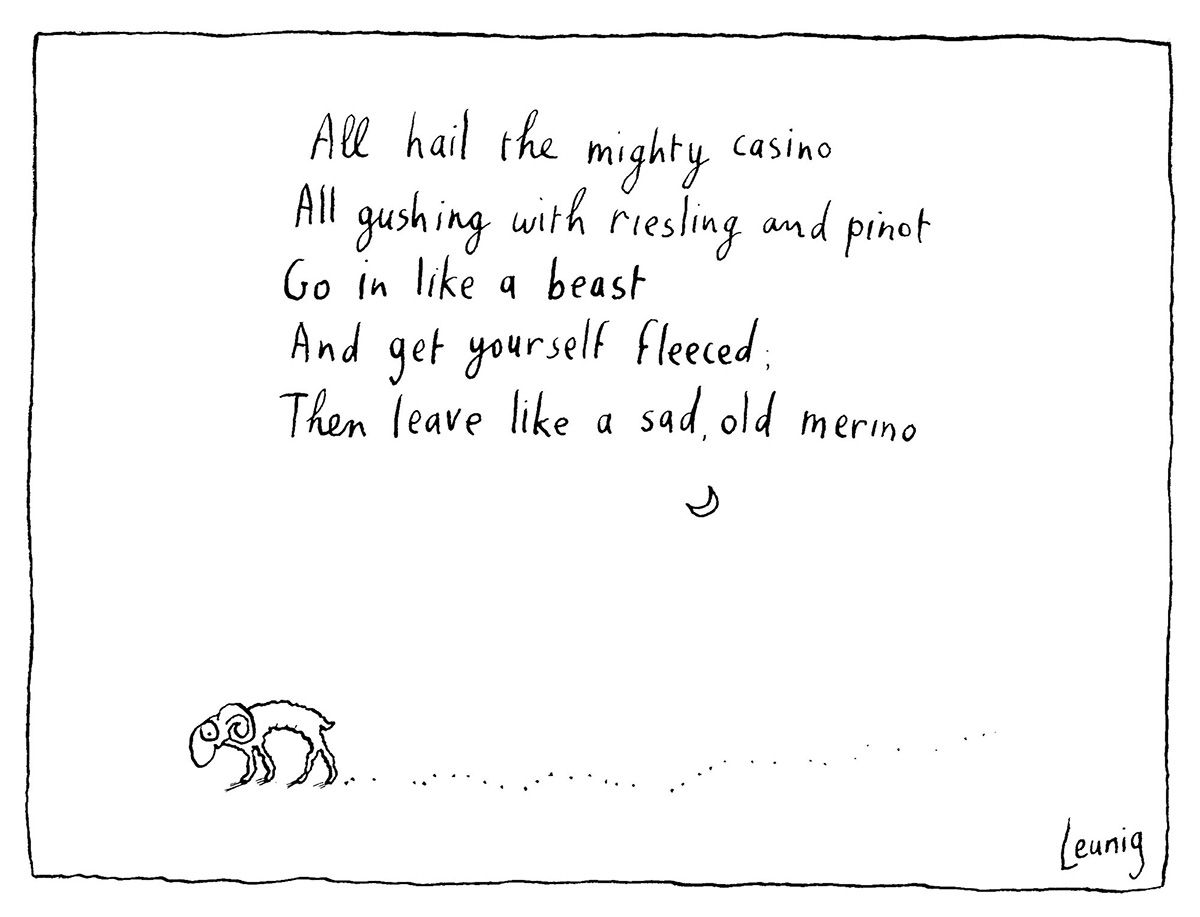 All hail the mighty casino
All gushing with riesling and pinot
Go in like a beast
And get yourself fleeced;
Then leave like a sad, old merino
Leunig